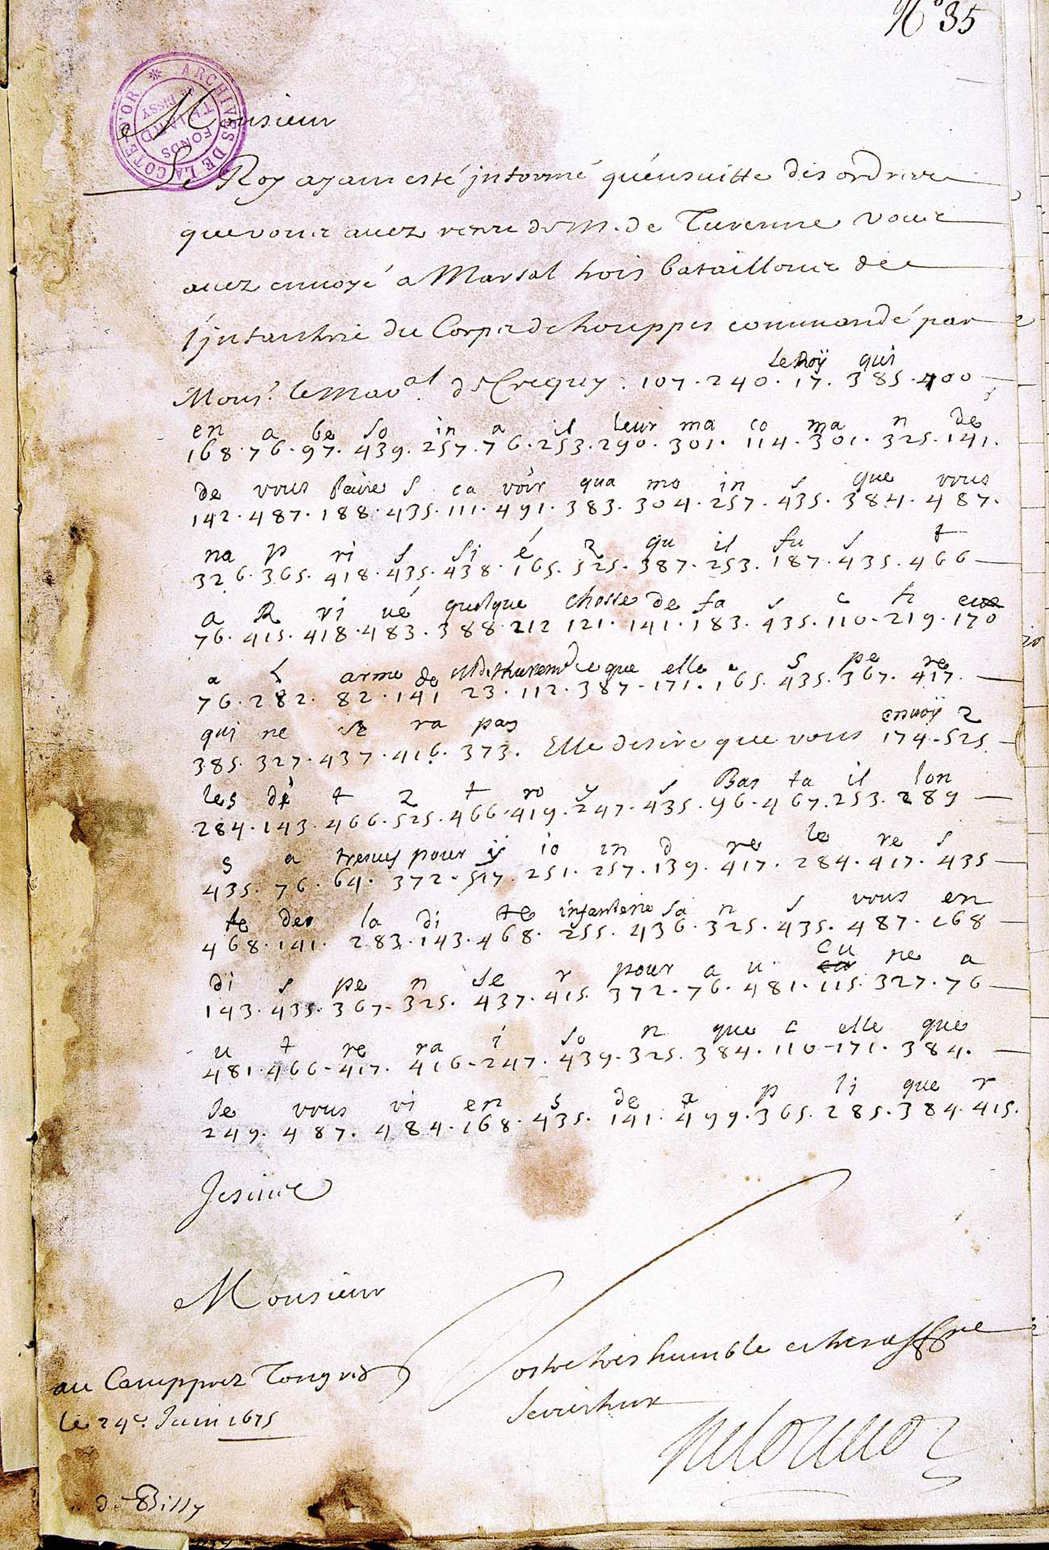 N° 35
ARCHIVES DE LA COTE D'OR
FONDS THIARD DE BISSY
Monsieur
Le Roy ayant esté informé qu'ensuitte des ordres
que vous avez receu de M. de Turenne vous
avez envoyé a Marsal trois bataillons de
l'jnfanterie du Corps de trouppes commandé par
le Roÿ qui
Mons.r le Mar.al de Crequy. 107. 240. 17. 385. 400
en a be so in a il leur ma co ma n de
168. 76. 97. 439. 257. 76. 253. 290. 301. 114. 301. 325. 141.
de vous faire s ca voir qua mo in s que vous
142. 487. 188. 435. 111. 491. 383. 304. 257. 435. 384. 487.
na p ri s si é 2 qu il fu s t
326. 365. 418. 435. 438. 165. 525. 387. 253. 187. 435. 466
a R ri ué quelque chosse de fa s c h
76. 415. 418. 483. 388. 212 121. 141. 183. 435. 110. 219. 170
a L arme de que elle e s pe re
76. 282. 82. 141 23. 112. 387. 171. 165. 435. 367. 417.
qui ne se ra pas envoÿ 2
385. 327. 437. 416. 373. Elle desire que vous 174. 525.
les dé t 2 t ro y s Bas ta il lon
284. 143. 466. 525. 466. 419. 247. 435. 96. 467. 253. 289
s a pour io in d re le re s
435. 76. 64. 372. 517. 251. 257. 139. 417. 284. 417. 435
te der la di te infanterie sa n s vous en
468. 141. 283. 143. 468. 255. 436. 325. 435. 487. 168
di s pe n se r pour a u cu ne a
143. 435. 367. 325. 437. 415. 372. 76. 481. 115. 327. 76
u t re ra i so n que c elle que
481. 466. 417. 416. 247. 439. 325. 384. 110. 171. 384.
Je vous vi en s de p li que r
249. 487. 484. 168. 435. 141. 499. 365. 285. 384. 415.
Je suis
Monsieur
Vostre tres humble et tres aff.né
serviteur
au Camp prez Tongres
le 24.e Juin 1675
Louvois
de Bissy